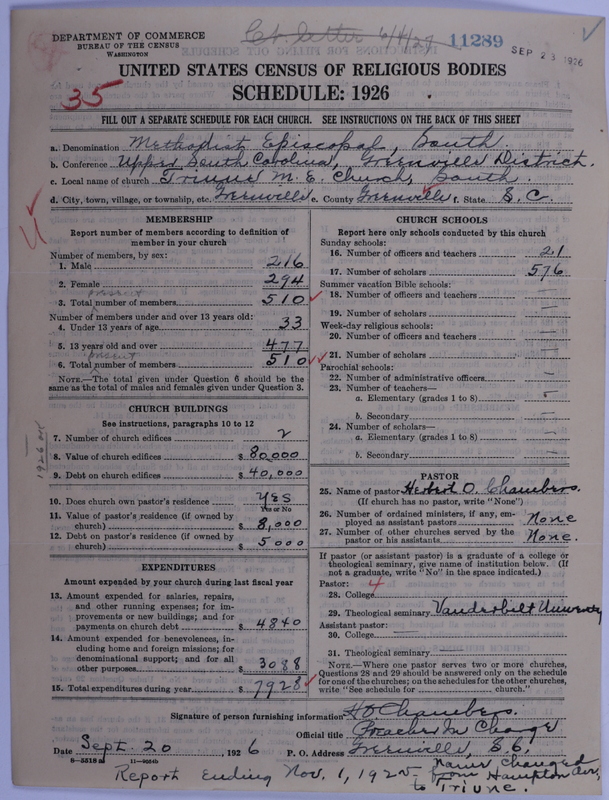 DEPARTMENT OF COMMERCE
BUREAU OF THE CENSUS
WASHINGTON
Ct. letter 6/4/27
11289
SEP 23 1926
UNITED STATES CENSUS OF RELIGIOUS BODIES
SCHEDULE: 1926
35
FILL OUT A SEPARATE SCHEDULE FOR EACH CHURCH. SEE INSTRUCTIONS ON THE BACK OF THIS SHEET
a. Denomination Methodist Episcopal, South.
b. Conference Upper South Carolina, Greenville District.
c. Local name of church Triune M. E. Church, South.
d. City, town, village, or township, etc. Greenville e. County Greenville f. State S. C.
MEMBERSHIP
Report number of members according to definition of
member in your church
Number of members, by sex:
1. Male 216
2. Female 294
present
3. Total number of members 510
Number of members under and over 13 years old:
4. Under 13 years of age 33
5. 13 years old and over 477
present
6. Total number of members 510
NOTE.—The total given under Question 6 should be
same as the total of males and females given under Question 3.
CHURCH BUILDINGS
See instructions, paragraphs 10 to 12
7. Number of church edifices 2
8. Value of church edifices $ 80,000
9. Debt on church edifices $ 40,000
10. Does church own pastor's residence YES
Yes or No
11. Value of pastor's residence (if owned by
church) $ 8,000
12. Debt on pastor's residence (if owned by
church) $ 5000
EXPENDITURES
Amount expended by your church during last fiscal year
13. Amount expended for salaries, repairs,
and other running expenses; for im-
provements or new buildings; and for
payments on church debt $ 4840
14. Amount expended for benevolences, in-
cluding home and foreign missions; for
denominational support; and for all
other purposes $ 3088
15. Total expenditures during year $ 7928
CHURCH SCHOOLS
Report here only schools conducted by this church
Sunday schools:
16. Number of officers and teachers 21
17. Number of scholars 576
Summer vacation Bible schools:
18. Number of officers and teachers —
19. Number of scholars —
Week-day religious schools:
20. Number of officers and teachers —
21. Number of scholars —
Parochial schools:
22. Number of administrative officers —
23. Number of teachers—
a. Elementary (grades 1 to 8) —
b. Secondary —
24. Number of scholars—
a. Elementary (grades 1 to 8) —
b. Secondary —
PASTOR
25. Name of pastor Herbert O. Chambers.
(If church has no pastor, write "None")
26. Number of ordained ministers, if any, em-
ployed as assistant pastors None
27. Number of other churches served by the
pastor or his assistants None.
If pastor (or assistant pastor) is a graduate of a college or
theological seminary, give name of institution below. (If
not a graduate, write "No" in the space indicated.)
Pastor: 4
28. College
29. Theological seminary Vanderbilt University
Assistant pastor:
30. College —
31. Theological seminary
NOTE.—Where one pastor serves two or more churches,
Questions 28 and 29 should be answered only on the schedule
for one of the churches; on the schedules for the other churches,
write "See schedule for church."
Signature of person furnishing information H. O. Chambers.
Official title Preacher In Charge
Date Sept. 20, 1926 P. O. Address Greenville, S.C.
8—5518 a
Report Ending Nov. 1, 1925 — Name changed
from Hampton Ave,
to Triune.